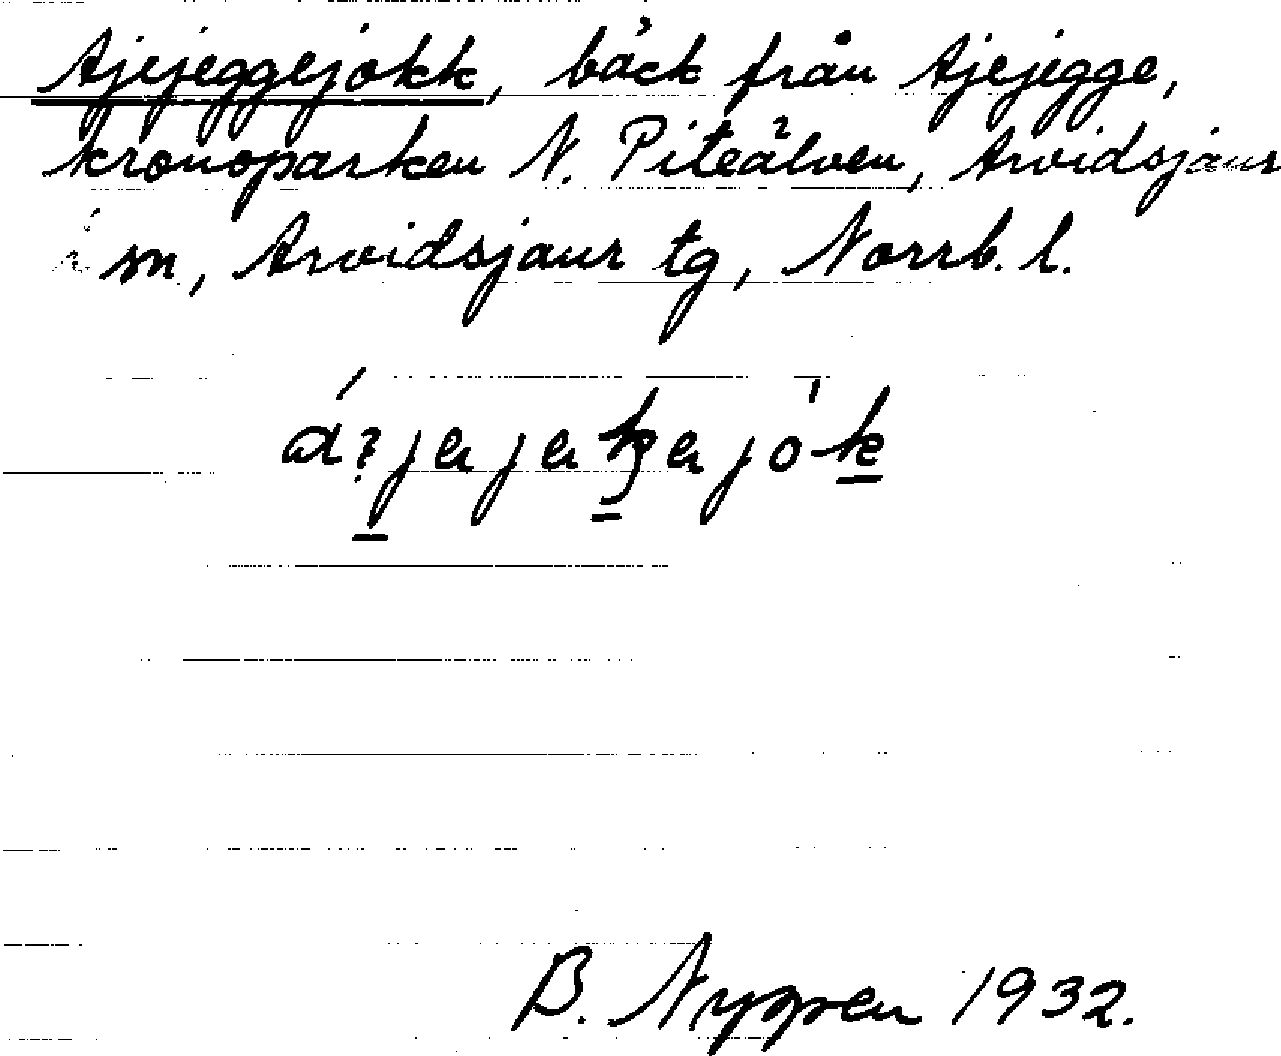 Ajejeggejokk, bäck från Ajejegge,
kronoparken N. Piteälven, Arvidsjaur
sn, Arvidsjaur tg, Norrb. l.
B. Nygren 1932.